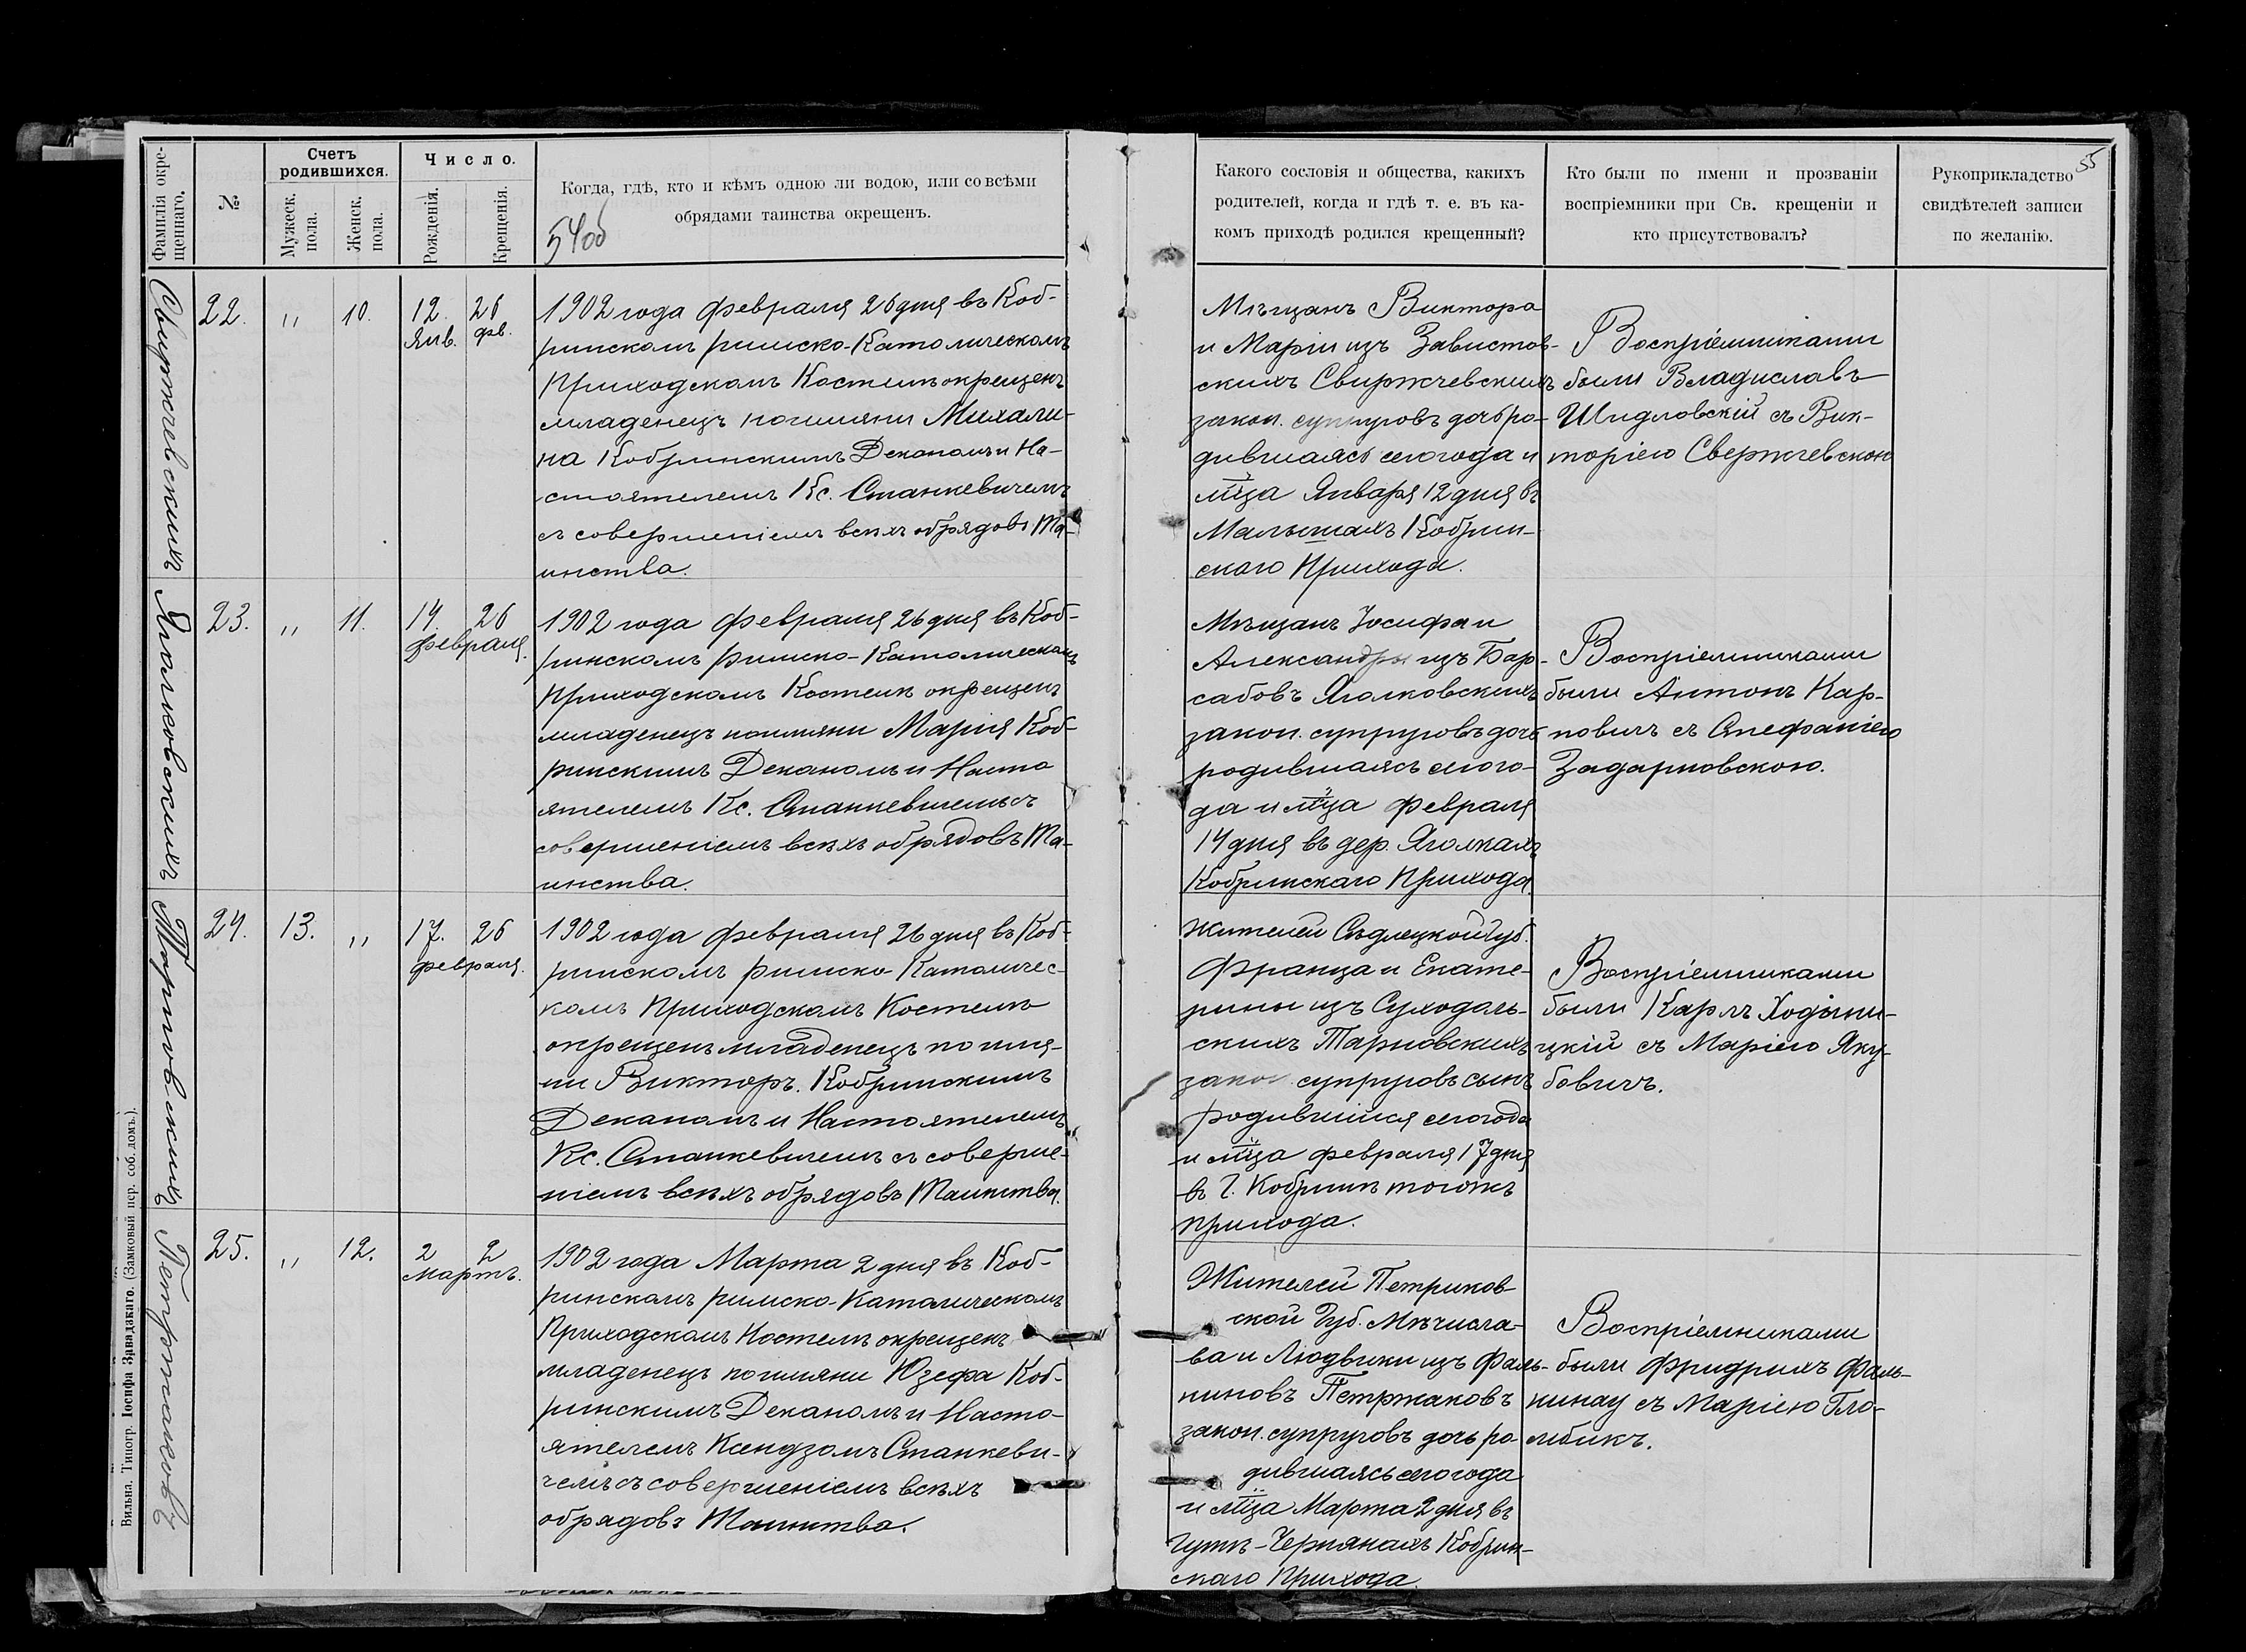 Фамилія окре-
щеннаго.
№
Счетъ
родившихся.
Мужеск.
пола.
Женск.
пола.
Число.
Рожденія.
Крещенія.
Когда, гдѣ, кто и кѣмъ одною ли водою, или со всѣми
обрядами таинства окрещенъ.
54об
Свиржчевскихъ
22.
"
10.
12.
Янв.
26
фв.
1902 года февраля 26 дня въ Коб-
ринскомъ римско-Католическомъ
Приходскомъ Костелѣ окрещенъ
младенецъ по имяни Михали-
на Кобринскимъ Деканомъ и На-
стоятелемъ Кс. Станкевичемъ
съ совершеніемъ всѣхъ обрядовъ Та-
инства.
Яголковскихъ
23.
"
11.
14. 26
февраля.
1902 года февраля 26 дня въ Коб-
ринскомъ римско-Католическомъ
Приходскомъ Костелѣ окрещенъ
младенецъ по имяни Марія Коб-
ринскимъ Деканомъ и Насто
ятелемъ Кс. Станкевичемъ съ
совершеніемъ всѣхъ обрядовъ Та-
инства.
Тарновскихъ
24.
13.
"
17. 26
февраля.
1902 года февраля 26 дня въ Коб-
ринскомъ римско Католичес-
комъ Приходскомъ Костелѣ
окрещенъ младенецъ по имя-
ни Викторъ. Кобринскимъ
Деканомъ и Настоятелемъ
Кс. Станкевичемъ съ соверше-
ніемъ всѣхъ обрядовъ Таинства.
Петржаковъ
25.
"
12.
2 2
Мартъ.
1902 года Марта 2 дня въ Коб-
ринскомъ римско-Католическомъ
Приходскомъ Костелѣ окрещенъ
младенецъ по имяни Юзефа Коб-
ринскимъ Деканомъ и Насто-
ятелемъ Ксендзомъ Станкеви-
чемъ съ совершеніемъ всѣхъ
обрядовъ Таинства.
Вильна. Типогр. Іосифа Завадзкаго. (Замковый пер. соб. домъ.)
55
Какого сословія и общества, какихъ
родителей, когда и гдѣ т. е. въ ка-
комъ приходѣ родился крещенный?
Кто были по имени и прозваніи
воспріемники при Св. крещеніи и
кто присутствовалъ?
Рукоприкладство
свидѣтелей записи
по желанію.
Мѣщанъ Виктора
и Маріи изъ Завистов-
скихъ Свиржчевскихъ
закон. супруговъ дочь ро-
дившаяся сего года и
мца Января 12 дня въ
Малышахъ Кобрин-
скаго Прихода.
Воспріемниками
были Владиславъ
Шидловскій съ Вик-
торіею Свержчевскою
Мѣщанъ Іосифа и
Александры изъ Бар-
сабовъ Яголковскихъ
закон. супруговъ дочь
родившаясь сего го-
да и мца февраля
14 дня въ дер. Яголкахъ
Кобринскаго Прихода.
Воспріемниками
были Антонъ Кар-
повичъ съ Стефаніею
Задарновскою.
Жителей Сѣдлецкой Губ.
Франца и Екате-
рины изъ Суходоль-
скихъ Тарновскихъ
закон. супруговъ сынъ
родившійся сего года
и мца февраля 17 дня
въ Г. Кобринѣ тогожъ
прихода.
Воспріемниками
были Карлъ Ходыни-
цкій съ Маріею Яку-
бовичъ.
Жителей Петриков
ской Губ. Мѣчисла-
ва и Людвики изъ Фаль-
киновъ Петржаковъ
закон. супруговъ дочь ро-
дившаясь сего года
и мца Марта 2 дня въ
Гутѣ-Чернянахъ Кобрин-
скаго Прихода.
Воспріемниками
были Фридрихъ Фаль-
кинау съ Маріею Гло-
мбикъ.